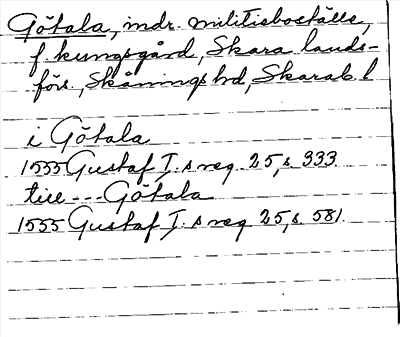 Götala, mdr. militieboställe,
f kungsgård, Skara lands-
förs., Skånings hd, Skarab. l
i Götala
1555 Gustaf I:s reg 25, s. 333.
till --- Götala
1555 Gustaf I:s reg 25, s. 581.